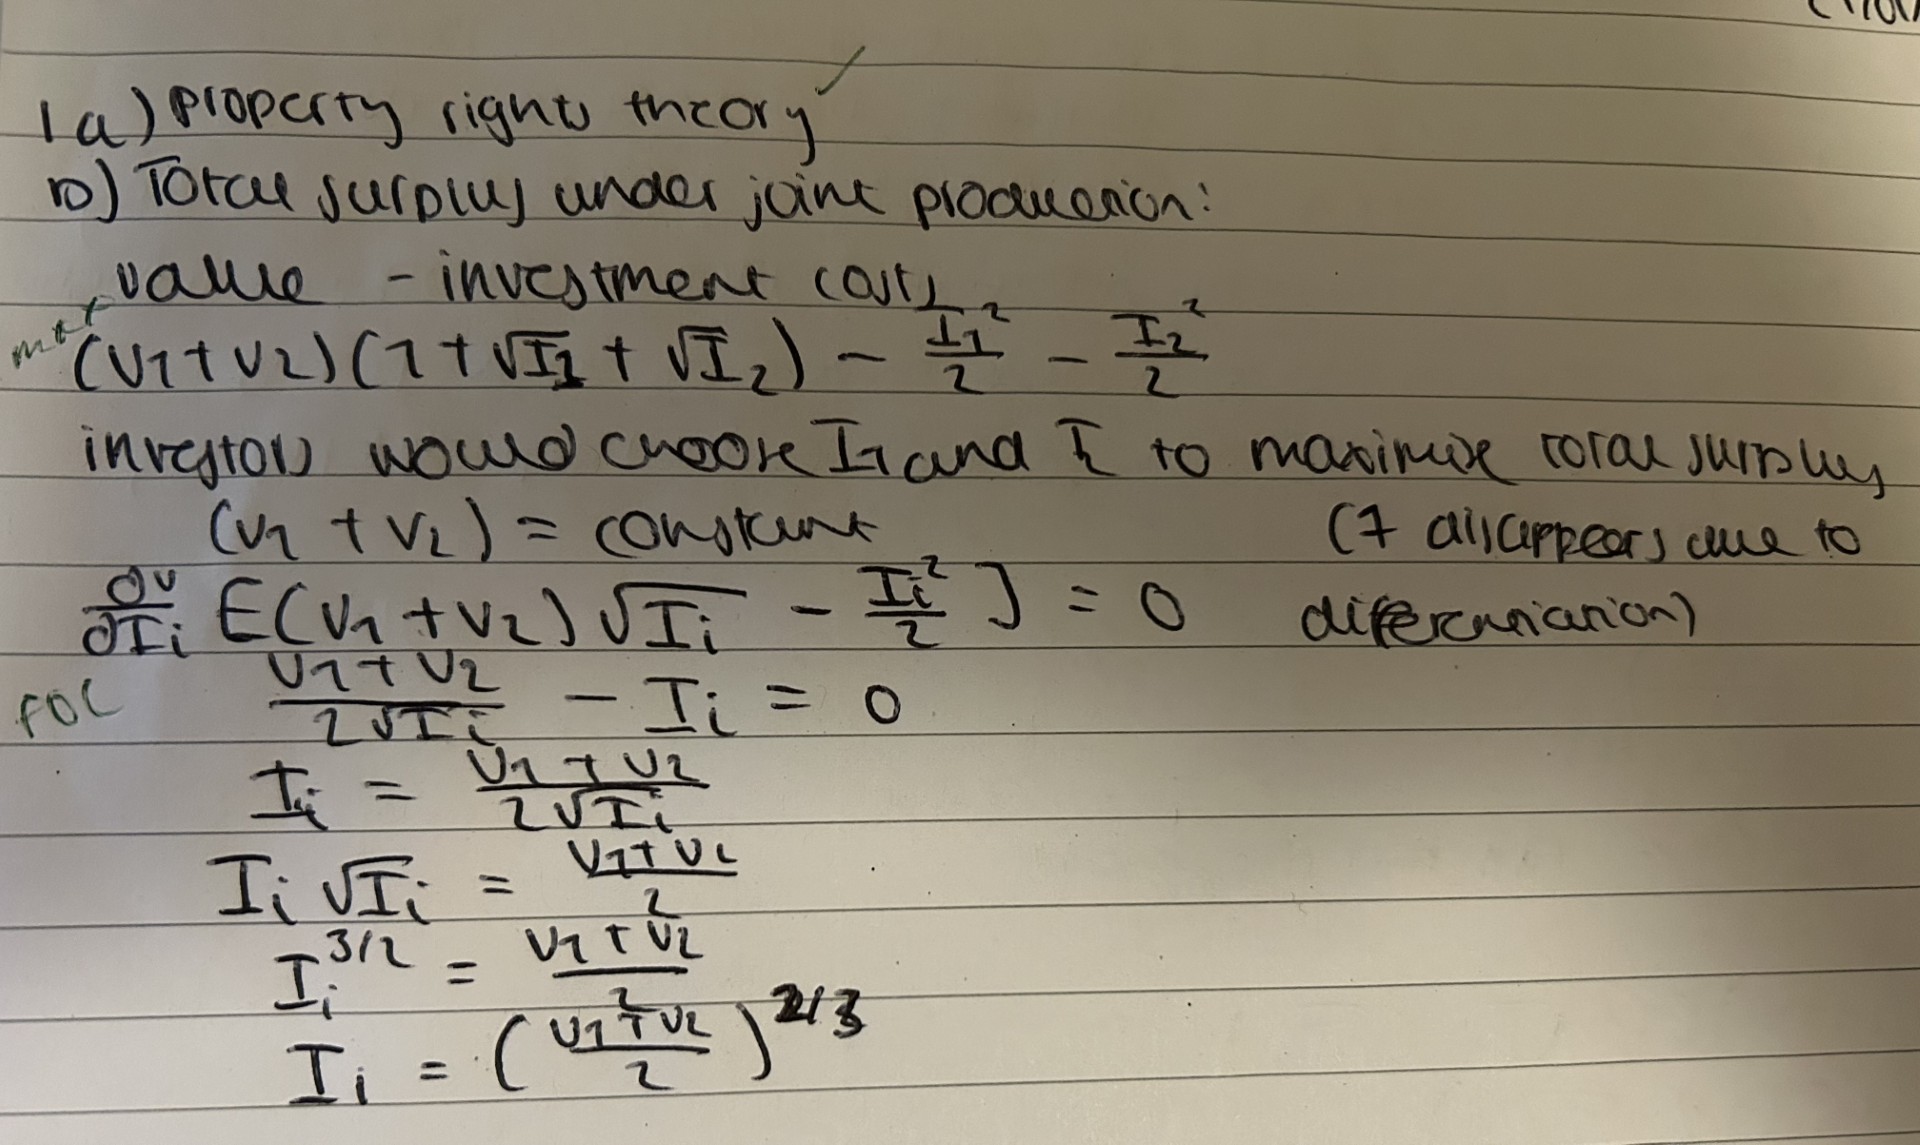 1a) Property rights theory ✓
b) Total surplus under joint production:
value - investment costs
max (V1+V2)(1+√I1 + √I2) - I1²/2 - I2²/2
investors would choose I1 and I2 to maximise total surplus
(V1 + V2) = constant (1 disappears due to
∂U/∂Ii [(V1+V2)√Ii - Ii²/2] = 0 differentiation)
FOC V1+V2/2√Ii - Ii = 0
Ii = V1+V2/2√Ii
Ii √Ii = V1+V2/2
Ii^3/2 = V1+V2/2
Ii = (V1+V2/2)^2/3